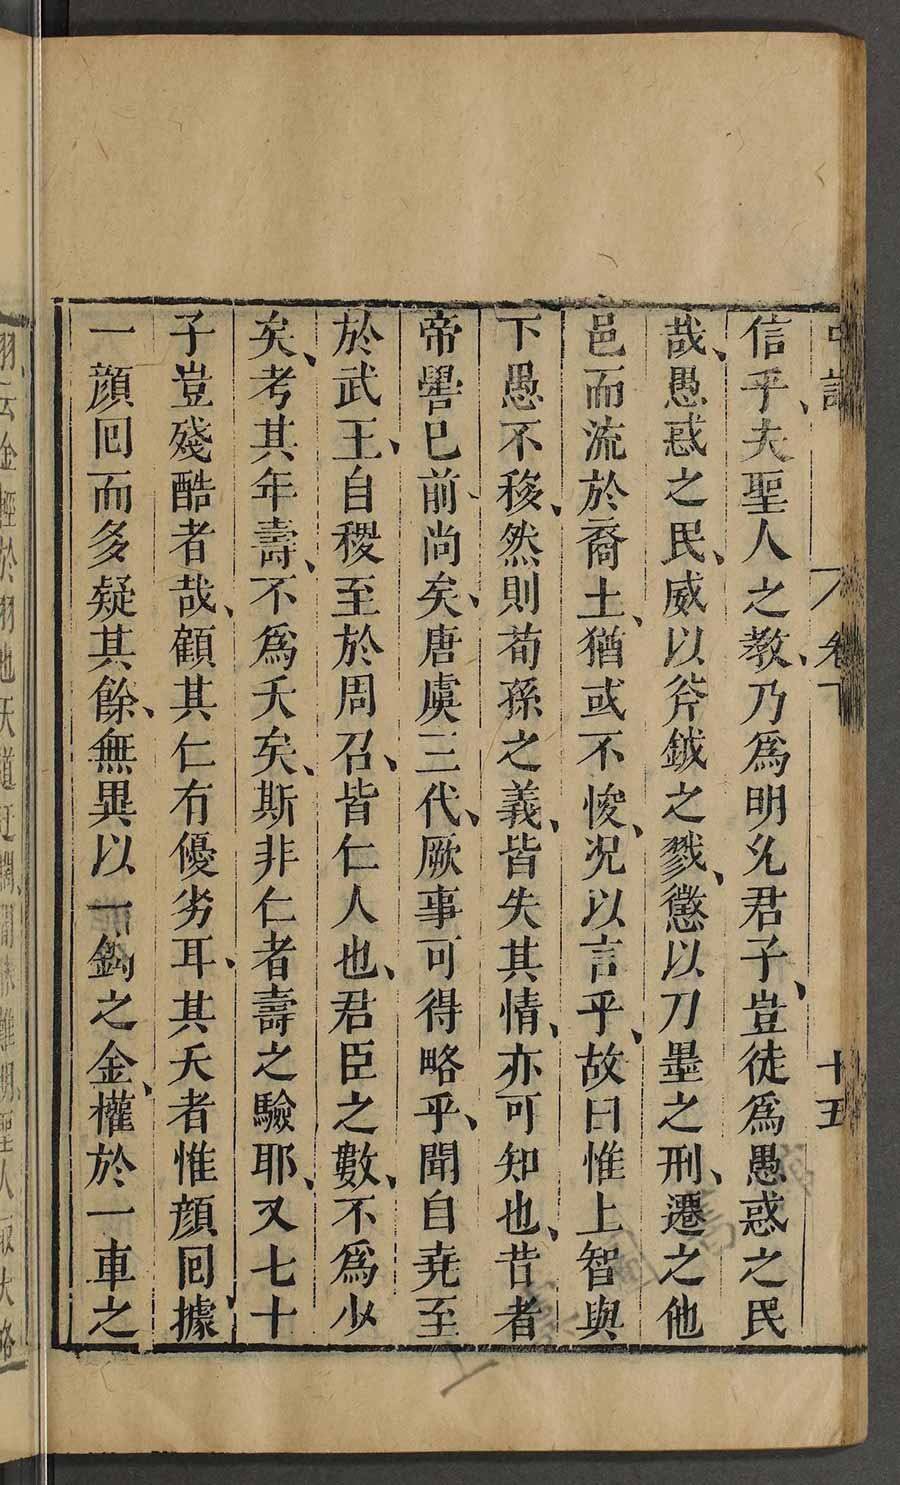 中論 卷下 十五
信乎、夫聖人之教、乃爲明允君子、豈徒爲愚惑之民
哉、愚惑之民、威以斧鉞之戮、懲以刀墨之刑、遷之他
邑而流於裔土、猶或不悛、况以言乎、故曰惟上智與
下愚不移、然則荀孫之義、皆失其情、亦可知也、昔者
帝嚳已前、尚矣、唐虞三代、厥事可得略乎、聞自堯至
於武王、自稷至於周召、皆仁人也、君臣之數、不爲少
矣、考其年壽、不爲夭矣、斯非仁者壽之驗耶、又七十
子豈殘酷者哉、顧其仁有優劣耳、其夭者惟顔回、據
一顔回而多疑其餘、無異以一鈎之金、權於一車之